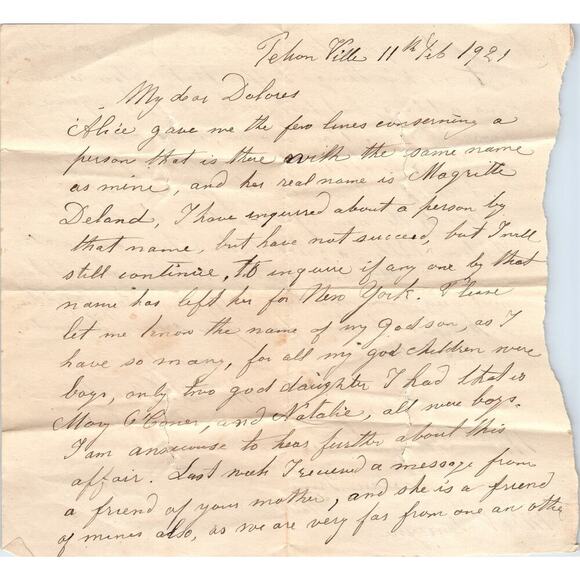 Tehon Ville 11th Feb 1921
My dear Dolores
Alice gave me the few lines concerning a
person that is there with the same name
as mine, and her real name is Magritte
Deland, I have inquired about a person by
that name, but have not succeed, but I will
still continue, to inquire if any one by that
name has left her for New York. Please
let me know the name of my Godson, as I
have so many, for all my god children were
boys, only two god daughter I had that is
Mary O'Coner, and Natalie, all were boys.
I am ansiouse to hear further about this
affair. Last week I received a message from
a friend of your mother, and she is a friend
of mines also, as we are very far from one an othe